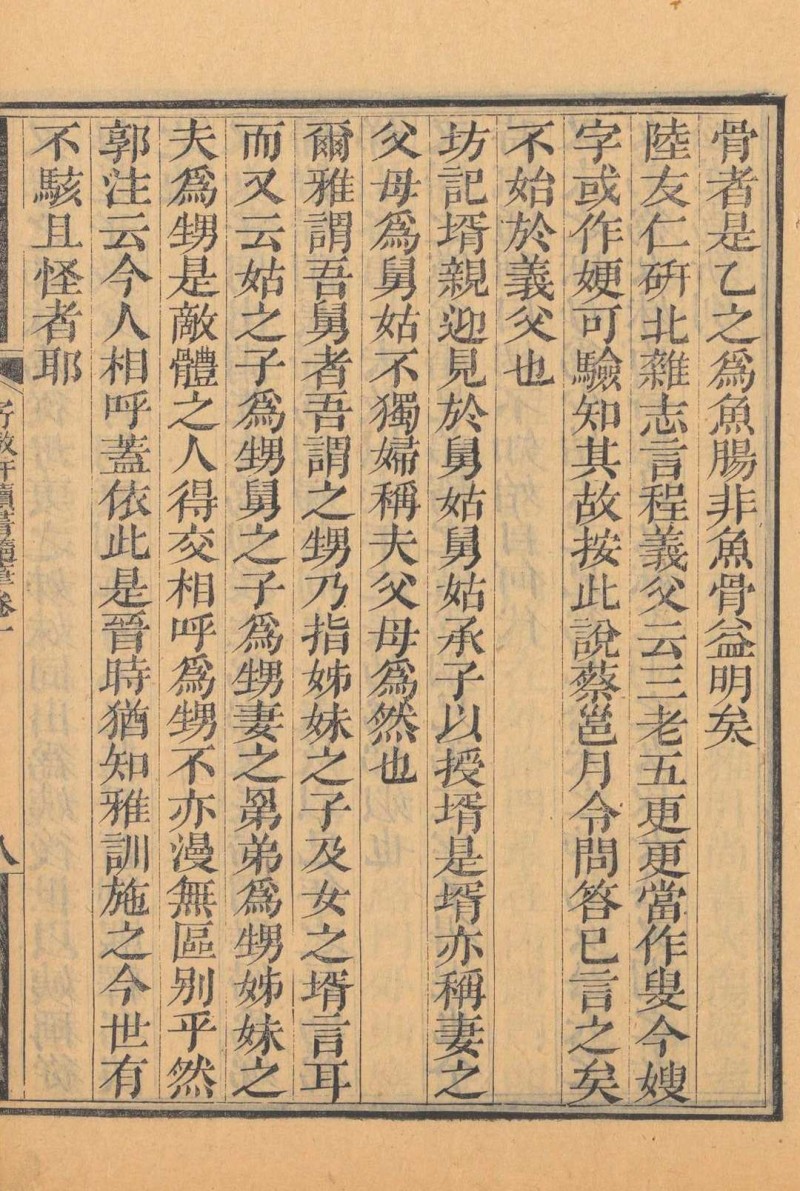 骨者是乙之爲魚腸非魚骨益明矣
陸友仁硏北雜志言程義父云三老五更更當作叟今嫂
字或作㛐可驗知其故按此說蔡邕月令問答已言之矣
不始於義父也
坊記壻親迎見於舅姑舅姑承子以授壻是壻亦稱妻之
父母爲舅姑不獨婦稱夫父母爲然也
爾雅謂吾舅者吾謂之甥乃指姊妹之子及女之壻言耳
而又云姑之子爲甥舅之子爲甥妻之晜弟爲甥姊妹之
夫爲甥是敵體之人得交相呼爲甥不亦漫無區别乎然
郭注云今人相呼蓋依此是晉時猶知雅訓施之今世有
不駭且怪者耶
讀書隨筆卷一
八